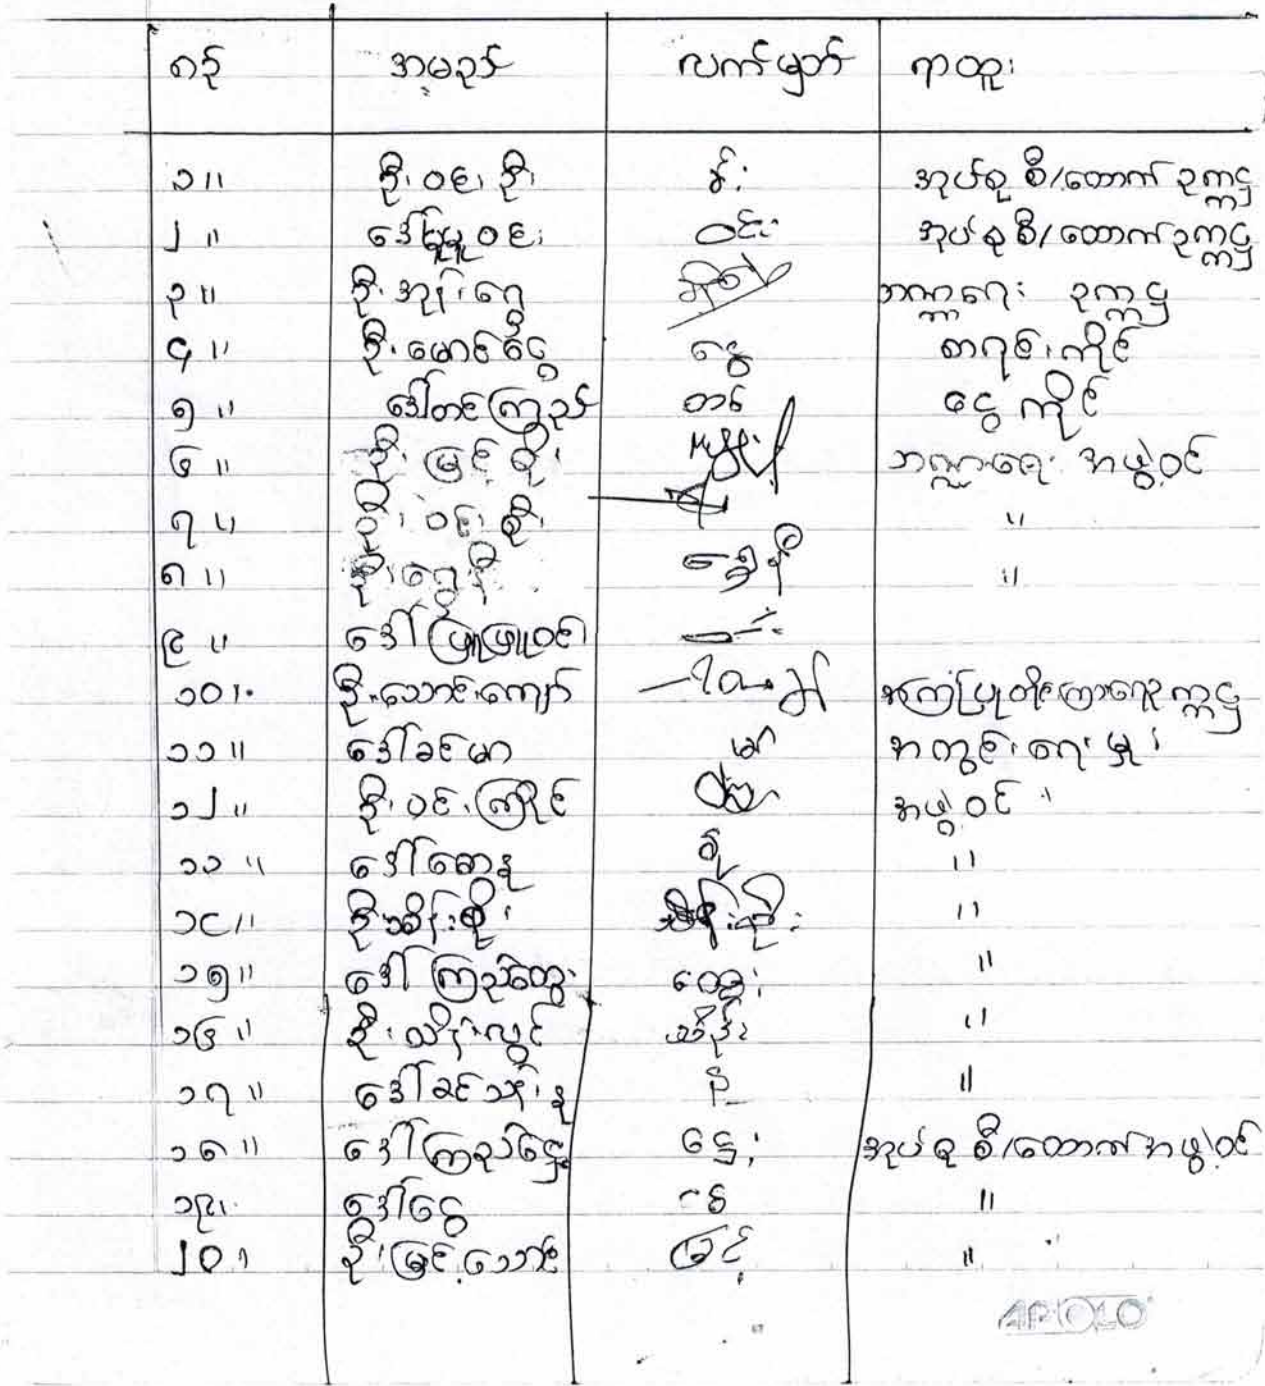 စဉ် အမည် လက်မှတ် ရာထူး
၁။ ဦးဝင်းဦး အုပ်စု စီ/ထောက် ဥက္ကဋ္ဌ
၂။ ဒေါ်မူမူဝင်း ဝင်း အုပ်စု စီ/ထောက် ဥက္ကဋ္ဌ
၃။ ဦးအုန်းရွှေ ဘဏ္ဍာရေး ဥက္ကဋ္ဌ
၄။ ဦးမောင်ငွေ ငွေ စာရင်းကိုင်
၅။ ဒေါ်တင်ကြည် တင် ငွေကိုင်
၆။ ဦးမြင့်စိုး ဘဏ္ဍာရေး အဖွဲ့ဝင်
၇။ ဦးဝင်းစိုး ။
၈။ ဦးရွှေနီ ရွှေနီ ။
၉။ ဒေါ်ဖြူဖြူဝင်း
၁၀။ ဦးသောင်းကျော် အကြံပြုတိုင်ကြားရေးဥက္ကဋ္ဌ
၁၁။ ဒေါ်ခင်မာ မာ အတွင်းရေးမှူး
၁၂။ ဦးဝင်းကြိုင် အဖွဲ့ဝင်
၁၃။ ဒေါ်စောနု နု ။
၁၄။ ဦးသိန်းစိုး သိန်းစိုး ။
၁၅။ ဒေါ်ကြည်ထွေး ထွေး ။
၁၆။ ဦးသိန်းလွင် သိန်း ။
၁၇။ ဒေါ်ခင်သန်းနု ။
၁၈။ ဒေါ်ကြည်ဌွေး ဌွေး အုပ်စု စီ/ထောက် အဖွဲ့ဝင်
၁၉။ ဒေါ်ငွေ ။
၂၀။ ဦးမြင့်သောင်း မြင့် ။
APOLO